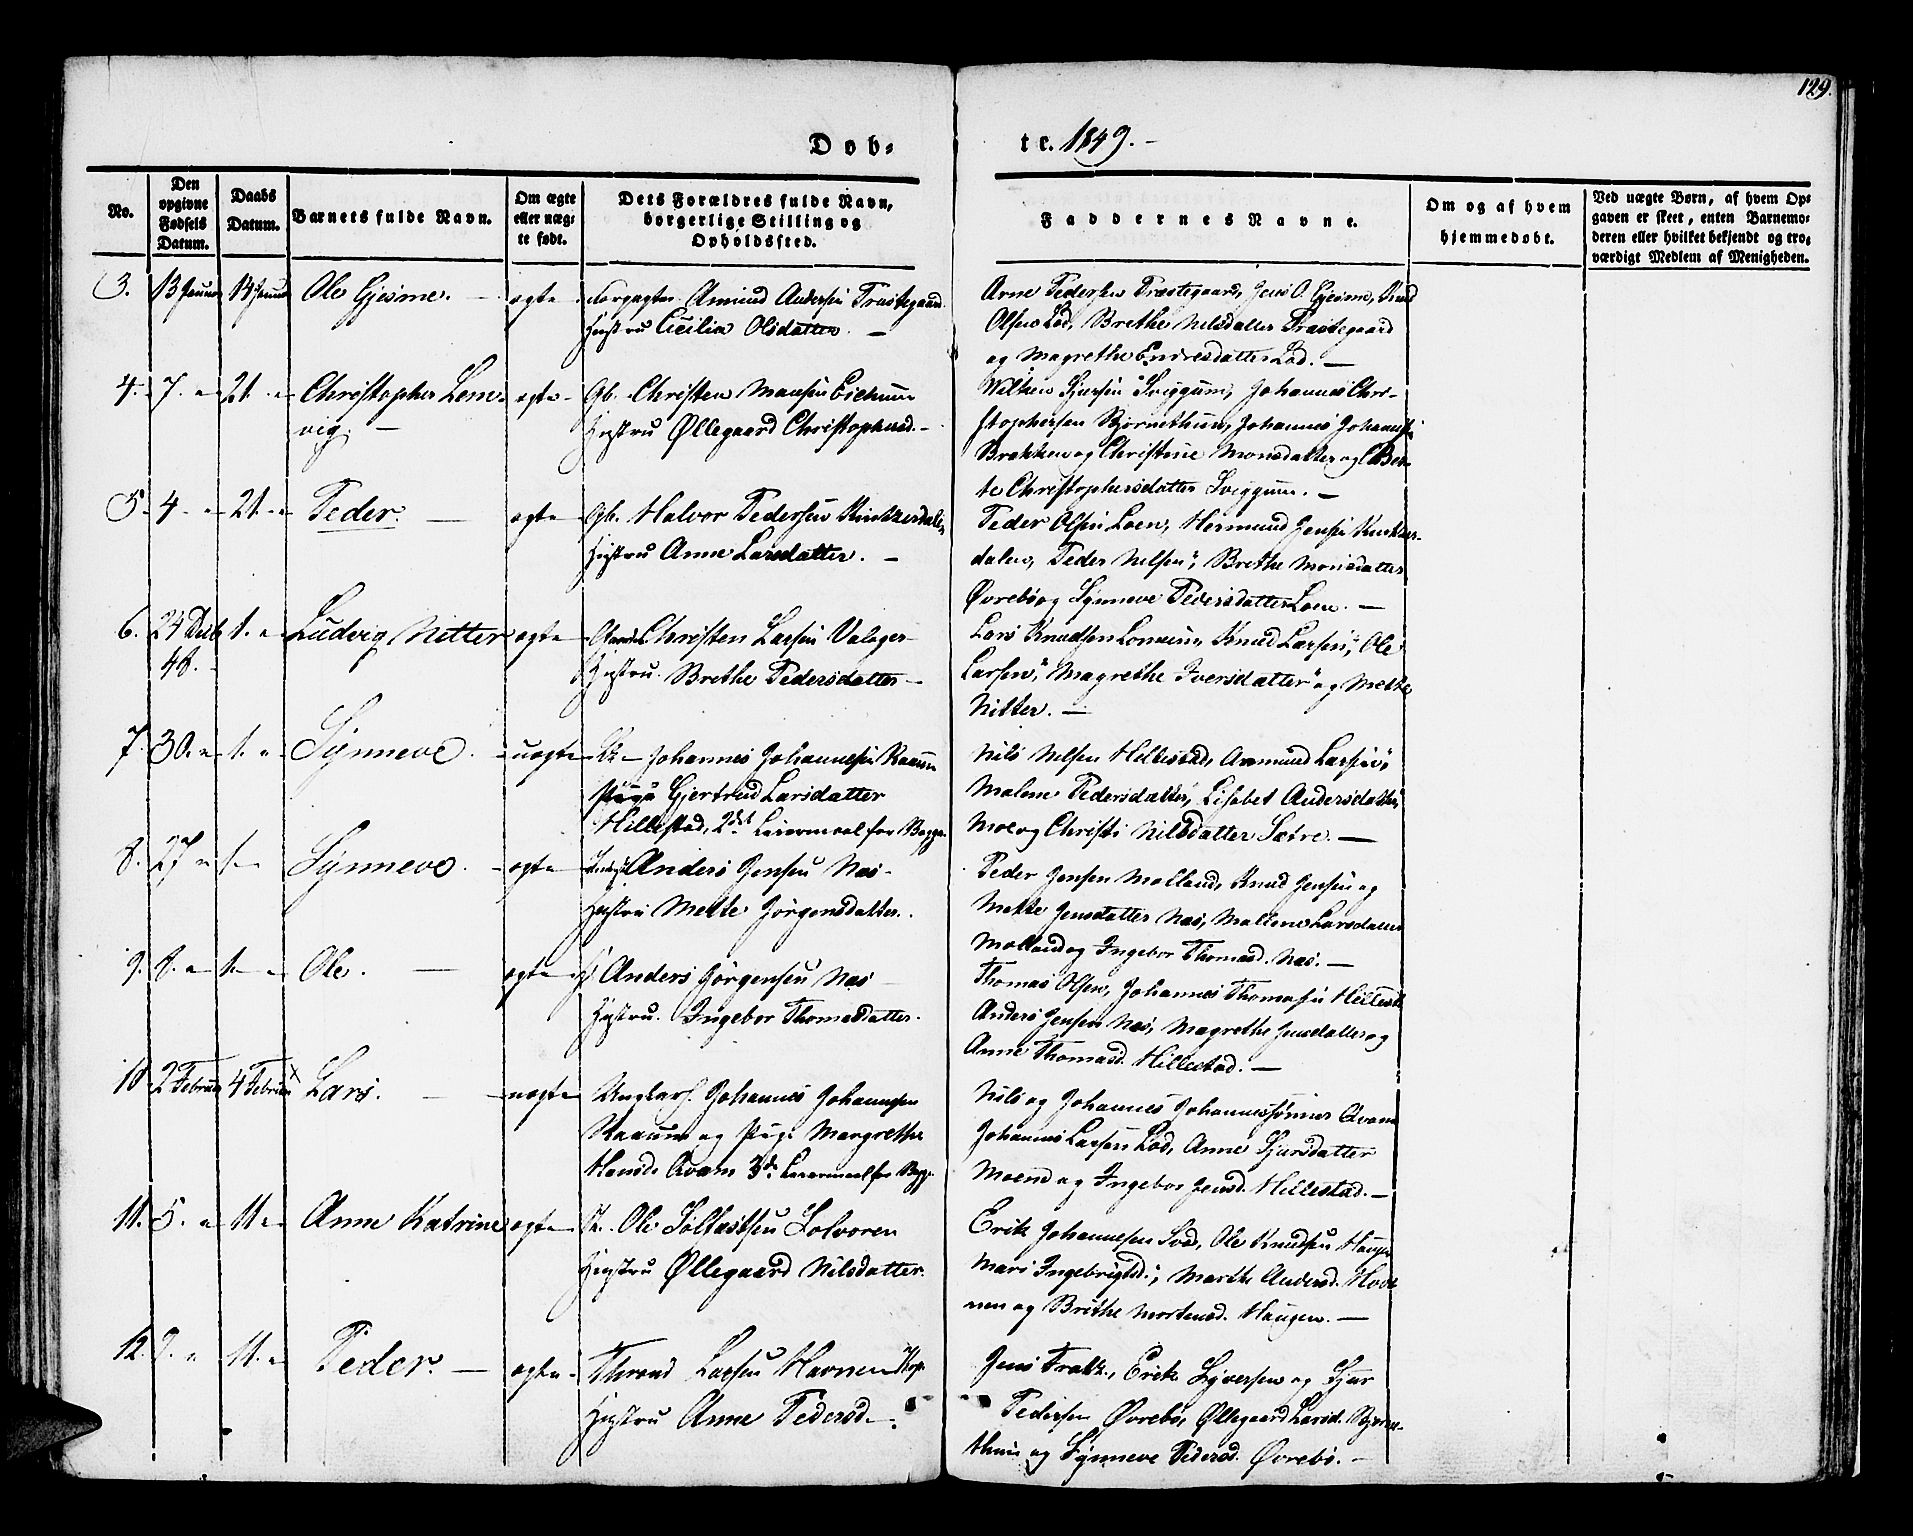 129.
Dob-
te. 1849. -
No.
Den opgivne Fødsels Datum.
Daabs Datum.
Barnets fulde Navn.
Om ægte eller uæg-te født.
Dets Forældres fulde Navn, borgerlige Stilling og Opholdssted.
Faddernes Navne.
Om og af hvem hjemmedøbt.
Ved uægte Børn, af hvem Op-gaven er skeet, enten Barnemo-deren eller hvilket bekjendt og tro-værdigt Medlem af Menigheden.
3. 13 Januar 14 Januar Ole Gjesme. - ægte Amund Andersen Prestegaard
Hustru Cicilia Olsdatter. -
Arne Pedersen Prestegaard, Jens O. Gjesme, Knud
Olsen Lad, Brethe Nilsdatter Prestegaard
og Magrethe Endresdatter Lad. -
4. 7. - 21. - Christopher Lem- ægte - Gb. Christen Monsen Eichum
vig. -
Hustru Øllegaard Christophersd. -
Wilken Sjursen Sviggum, Johannes Chri-
stophersen Bjørnethun, Johannes Johannesen
Brekken og Christine Monsdatter og Ber-
te Christophersdatter Sviggum. -
5. 4 - 21. - Peder. - ægte Gb. Halvor Pedersen Kinkerdalen
Hustru Anne Larsdatter. -
Peder Olsen Loen, Hermund Jensen Kinker-
dalen, Peder Nilsen ", Brethe Monsdatter
Øvrebø og Synneve Pedersdatter Loen. -
6. 24 Decb 1. - Ludvig Nitter ægte Christen Larsen Valager-
48. -
Hustru Brethe Pedersdatter -
Lars Knudsen Lomeim, Knud Larsen ", Ole
Larsen ", Magrethe Iversdatter " og Mette
Nitter. -
7. 30. - 1. - Synneve. - uægte Johannes Johannesen Raaum
Pige Gjertrud Larsdatter
Hillestad, 2det Leiermaal for Begge.
Nils Nilsen Hillestad, Amund Larsen ",
Malene Pedersdatter, Lisabet Andersdatter
Moe og Christi Nilsdatter Sætre. -
8. 27 - 1 - Synneve. - ægte Anders Jensen Næs -
Hustru Mette Jørgensdatter.
Peder Jensen Molland, Knud Jensen og
Mette Jensdatter Næs, Malene Larsdatter
Molland og Ingebor Thomasd. Næs. -
9. 8. - 1. - Ole. - ægte Anders Jørgensen Næs
Hustru. Ingebor Thomasdatter.
Thomas Olsen, Johannes Thomasen Hillest.
Anders Jensen Næs, Magrethe Jensdatter og
Anne Thomasd. Hillestad. -
10 2 Februar 4 Februar Lars. - uægte Ungkarl. Johannes Johannesen
Raaum og Pige Margrethe
Hansd. Qvam 3de Leiermaal for Begge
Nils og Johannes Johannessønner Qvam
Johannes Larsen Lad, Anne Sjursdatter
Moene og Ingebor Jensd. Hillestad. -
11. 5. - 11 - Anne Katrine ægte Ole Solfæstsen Solvoren
Hustru Øllegaard Nilsdatter.
Erik Johannesen Svad, Ole Knudsen Haugen
Mari Ingebrigtsd. ", Marthe Andersd. Hode-
nen og Brithe Mortensd. Haugen. -
12. 9. - 11. - Peder. - ægte - Thrond Larsen Havnen
Hustru Anne Pedersd -.
Jens Fratz, Erik Syversen og Sjur
Pedersen Øvrebø, Øllegaard Larsd. Bjørne-
thun og Synneve Pedersd. Øvrebø. -